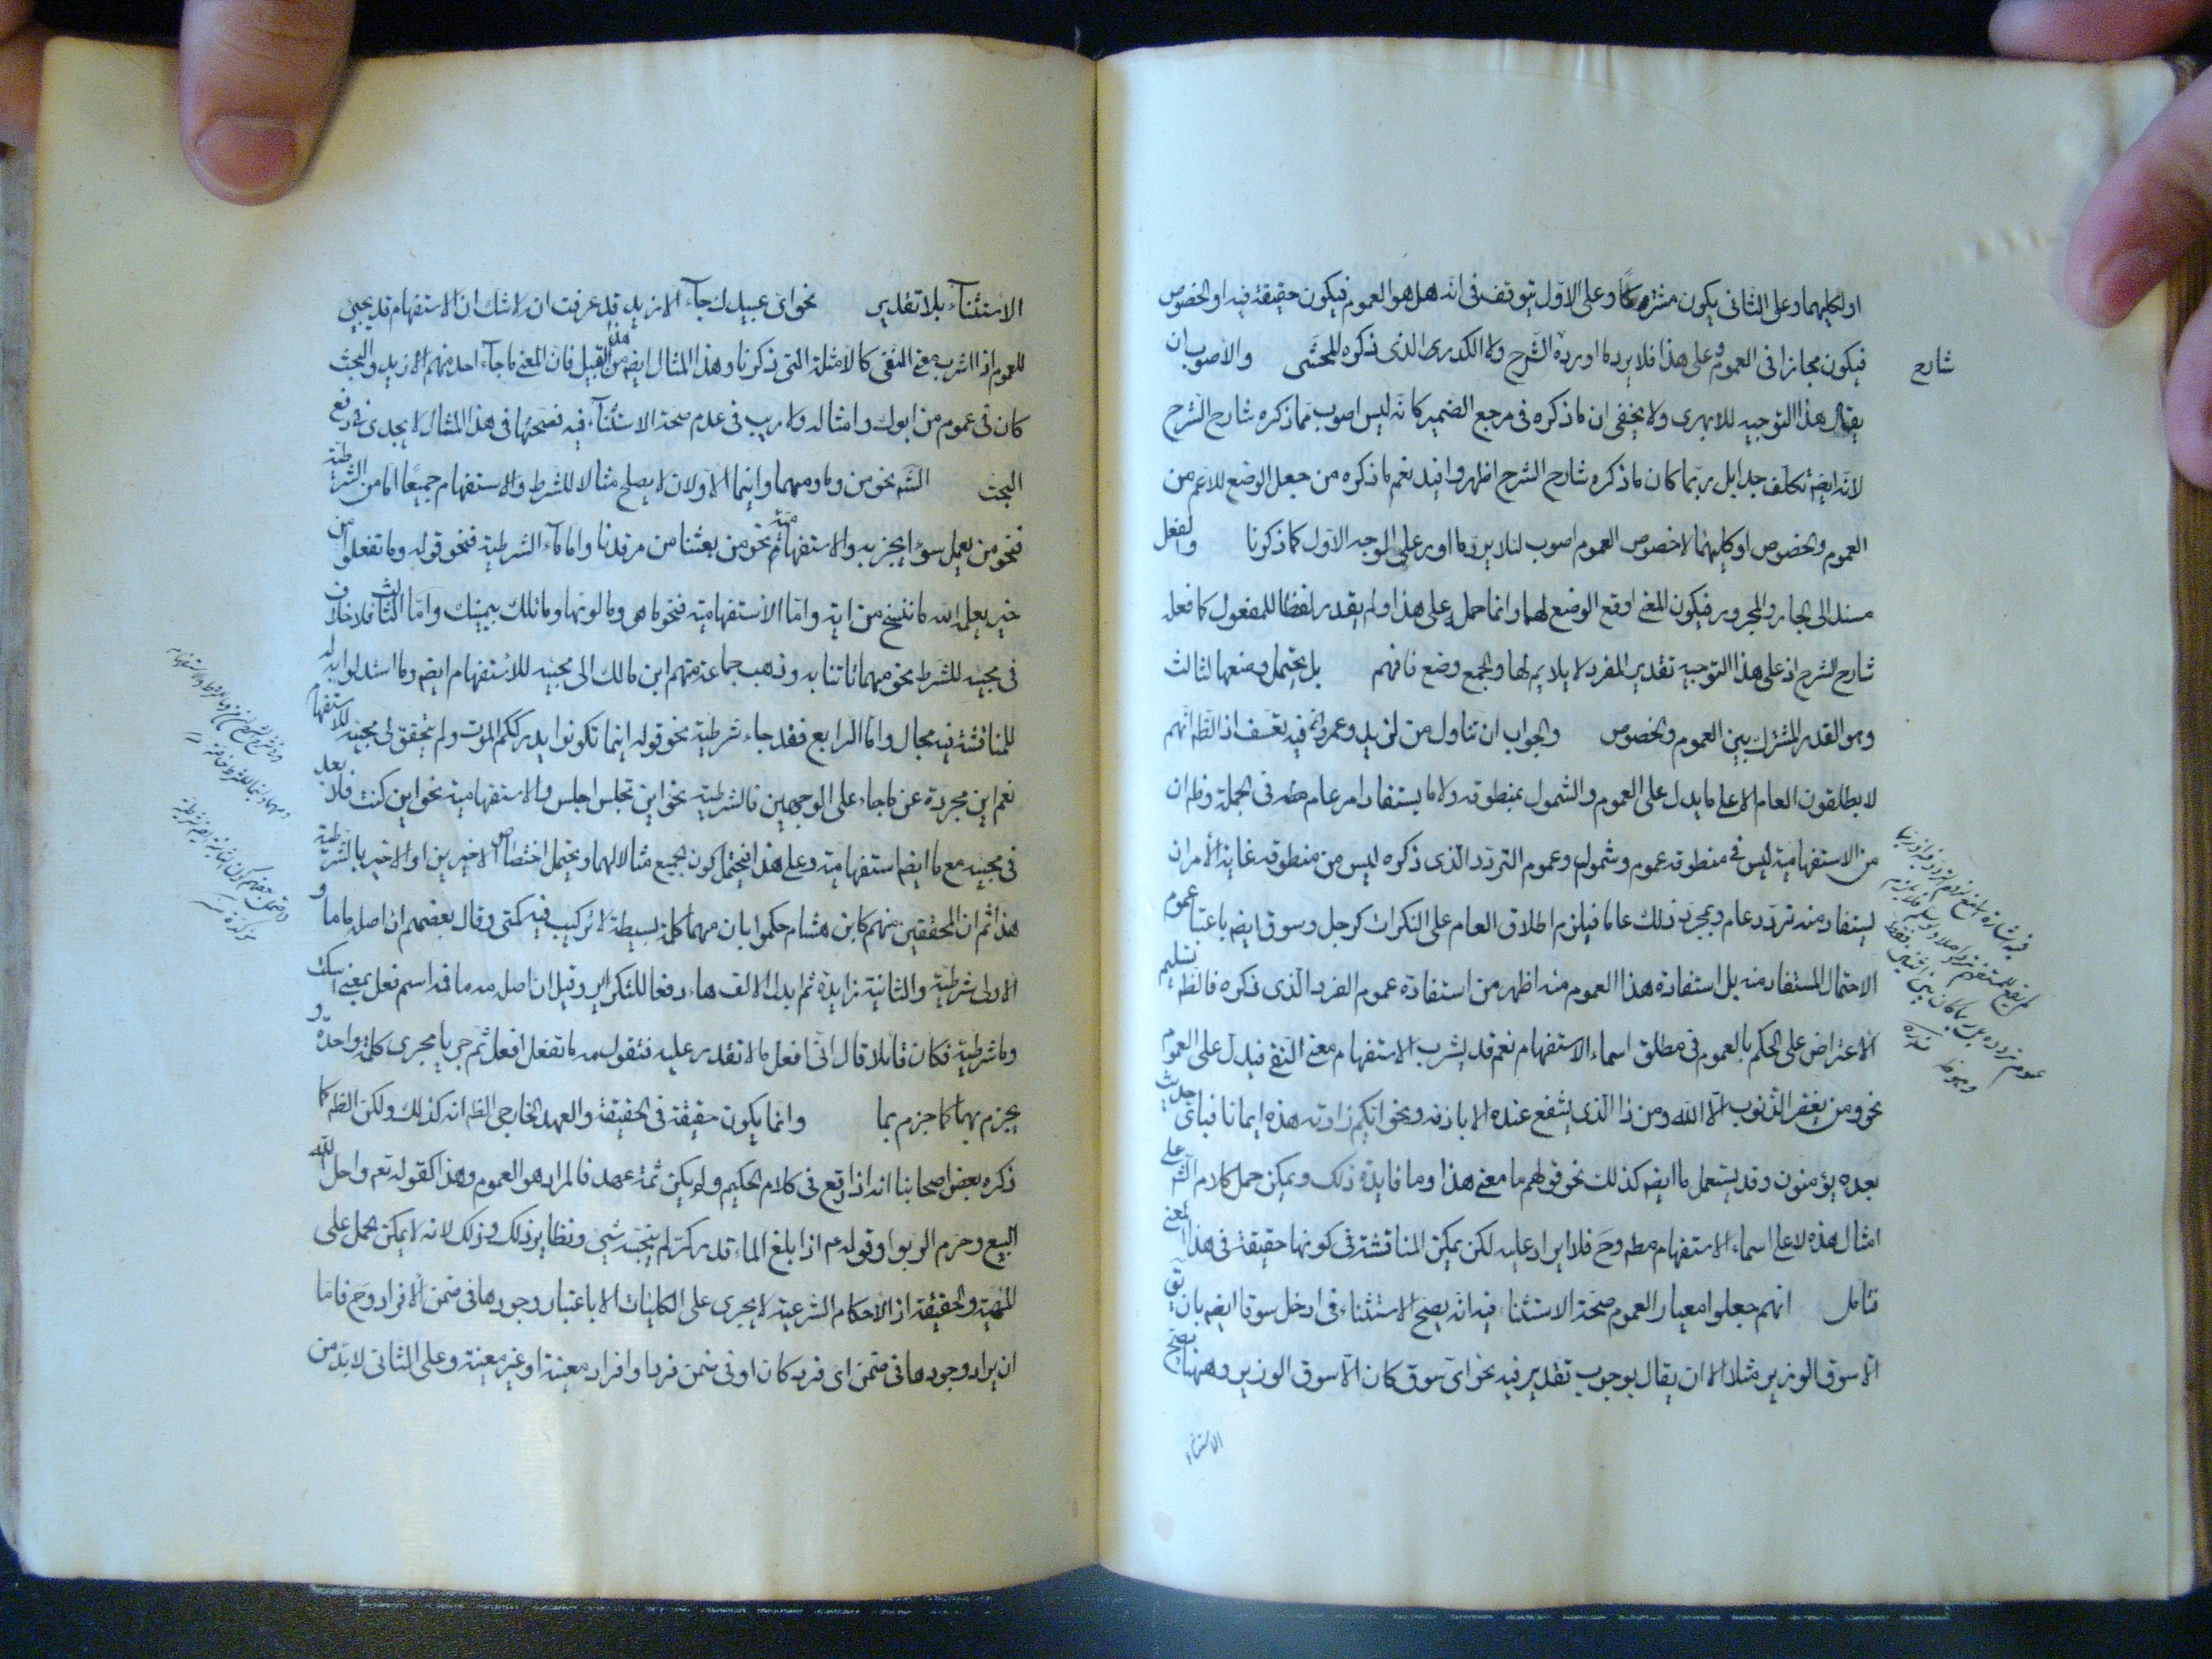 او لكليهما وعلى الثانى يكون مشتركا وعلى الاول يتوقف فى انه هل هو العموم فيكون حقيقة فيه او الخصوص
فيكون مجازا فى العموم وعلى هذا فلا يرد ما اورده الشرح ولا الذى ذكره المحشى والاصوب ان
شارح
يقال هذا التوجيه للابهرى ولا يخفى ان ما ذكره فى مرجع الضمير كانه ليس اصوب مما ذكره شارح الشرح
لانه ايضه تكلف جدا بل ربما كان ما ذكره شارح الشرح اظهر وافيد نعم ما ذكره من جعل الوضع للاعم من
العموم والخصوص او كليهما لا خصوص العموم اصوب لئلا يرد ما اورد على الوجه الاول كما ذكرنا والفعل
مسند الى الجار والمجرور فيكون المعنى اوقع الوضع لهما وانما حمل على هذا ولم يقدر لفظا للمفعول كما فعله
شارح الشرح اذ على هذا التوجيه تقدير المفرد لا يلايم لها والجمع وضع فافهم بل يحتمل وضعها لثالث
وهو القدر المشترك بين العموم والخصوص والجواب ان تناول من لزيد وعمرو فيه تعسف اذ الظ انهم
لا يطلقون العام الا على ما يدل على العموم والشمول بمنطوقه ولا ما يستفاد امر عام منه فى الجملة وظ ان
من الاستفهامية ليس فى منطوقه عموم وشمول وعموم التردد الذى ذكره ليس من منطوقه غاية الامر ان
يستفاد منه تردد عام وبمجرد ذلك عاما فيلزم اطلاق العام على النكرات كرجل وسوق ايضه باعتبا عموم
الاحتمال المستفاد منه بل استفادة هذا العموم منه اظهر من استفادة عموم الفرد الذى ذكره فالظ تسليم
الاعتراض على الحكم بالعموم فى مطلق اسماء الاستفهام نعم قد يشرب الاستفهام معنى النفى فيدل على العموم
نحو ومن يغفر الذنوب الا الله ومن ذا الذى يشفع عنده الا باذنه ونحو ايكم زادته هذه ايمانا فباى حديث
بعده يؤمنون وقد يستعمل ما ايضه كذلك نحو قولهم ما معنى هذا وما فايدة ذلك ويمكن حمل كلام الشه على
امثال هذه لا على اسماء الاستفهام مطه وح فلا ايراد عليه لكن يمكن المناقشة فى كونها حقيقة فى هذا المعنى
فتامل انهم جعلوا معيار العموم صحة الاستثناء فيه انه يصح الاستثناء فى ادخل سوقا ايضه بان يق
الا سوق الوزير مثلا الا ان يقال بوجوب تقدير فيه نحو اى سوق كان الا سوق الوزير وههنا يصح
الاستثناء
الاستثناء بلا تقدير نحو اى عبيدك جاء الا زيد قد عرفت ان لا شك ان الاستفهام قد يجئ
للعموم اذا اشرب معنى النفى كالامثلة التى ذكرنا وهذا المثال ايضه من هذا القبيل فان المعنى ما جاء احد منهم الا زيد والبحث
كان فى عموم من ابوك وامثاله ولا ريب فى عدم صحة الاستثناء فيه فصحتها فى هذا المثال لا يجدى فى دفع
البحث الشه نحو من وما ومهما واينما الاولان لا يصلح مثالا للشرط والاستفهام جميعا اما من الشرطية
فنحو من يعمل سوءا يجز به والاستفهامية نحو من بعثنا من مرقدنا واما ماء الشرطية فنحو قوله وما تفعلوا من
خير يعلمه الله ما ننسخ من اية واما الاستفهامية فنحو ما هو وما لونها وما تلك بيمينك واما الثالث فلا خلاف
فى مجيئه للشرط نحو مهما تاتنا به وذهب جماعة منهم ابن مالك الى مجيئه للاستفهام ايضه وما استدلوا به له
للمناقشة فيه مجال واما الرابع فقد جاء شرطية نحو قوله اينما تكونوا يدرككم الموت ولم يتحقق لى مجيئه للاستفها
نعم اين مجردة عن ما جاء على الوجهين فالشرطية نحو اين تجلس اجلس والاستفهامية نحو اين كنت فلا بعد
فى مجيئه مع ما ايضه استفهامية وعلى هذا فيحتمل كون الجميع مثالا لهما ويحتمل اختصاص الاخيرين او الاخير بالشرطية
هذا ثم ان المحققين منهم كابن هشام حكموا بان مهما كلمة بسيطة لا تركيب فيه كمتى وقال بعضهم ان اصله ما ما و
الاولى شرطية والثانية زايدة ثم ابدل الالف هاء دفعا للتكرار وقيل ان اصله مه ما فمه اسم فعل بمعنى اسكت و
وما شرطية فكان قائلا قال انى افعل ما لا تقدر عليه فتقول مه ما تفعل افعل ثم جريا مجرى كلمة واحدة
يجزم بهما كما جزم بما وانما يكون حقيقة فى الحقيقة والعهد الخارجى الظ انه كذلك ولكن الظ كما
ذكره بعض اصحابنا انه اذا وقع فى كلام الحكيم ولم يكن ثمة عهد فالمراد هو العموم وهذا كقوله تعه واحل الله
البيع وحرم الربوا وقوله ع اذا بلغ الماء قدر كر لم ينجسه شئ ونظاير ذلك وذلك لانه لا يمكن الحمل على
المهية والحقيقة اذ الاحكام الشرعية لا يجرى على الكليات الا باعتبار وجودها فى ضمن الافراد وح فاما
ان يراد وجودها فى ضمن اى فرد كان او فى ضمن فرد او افراد معينة او غير معينة وعلى الثانى لا بد من